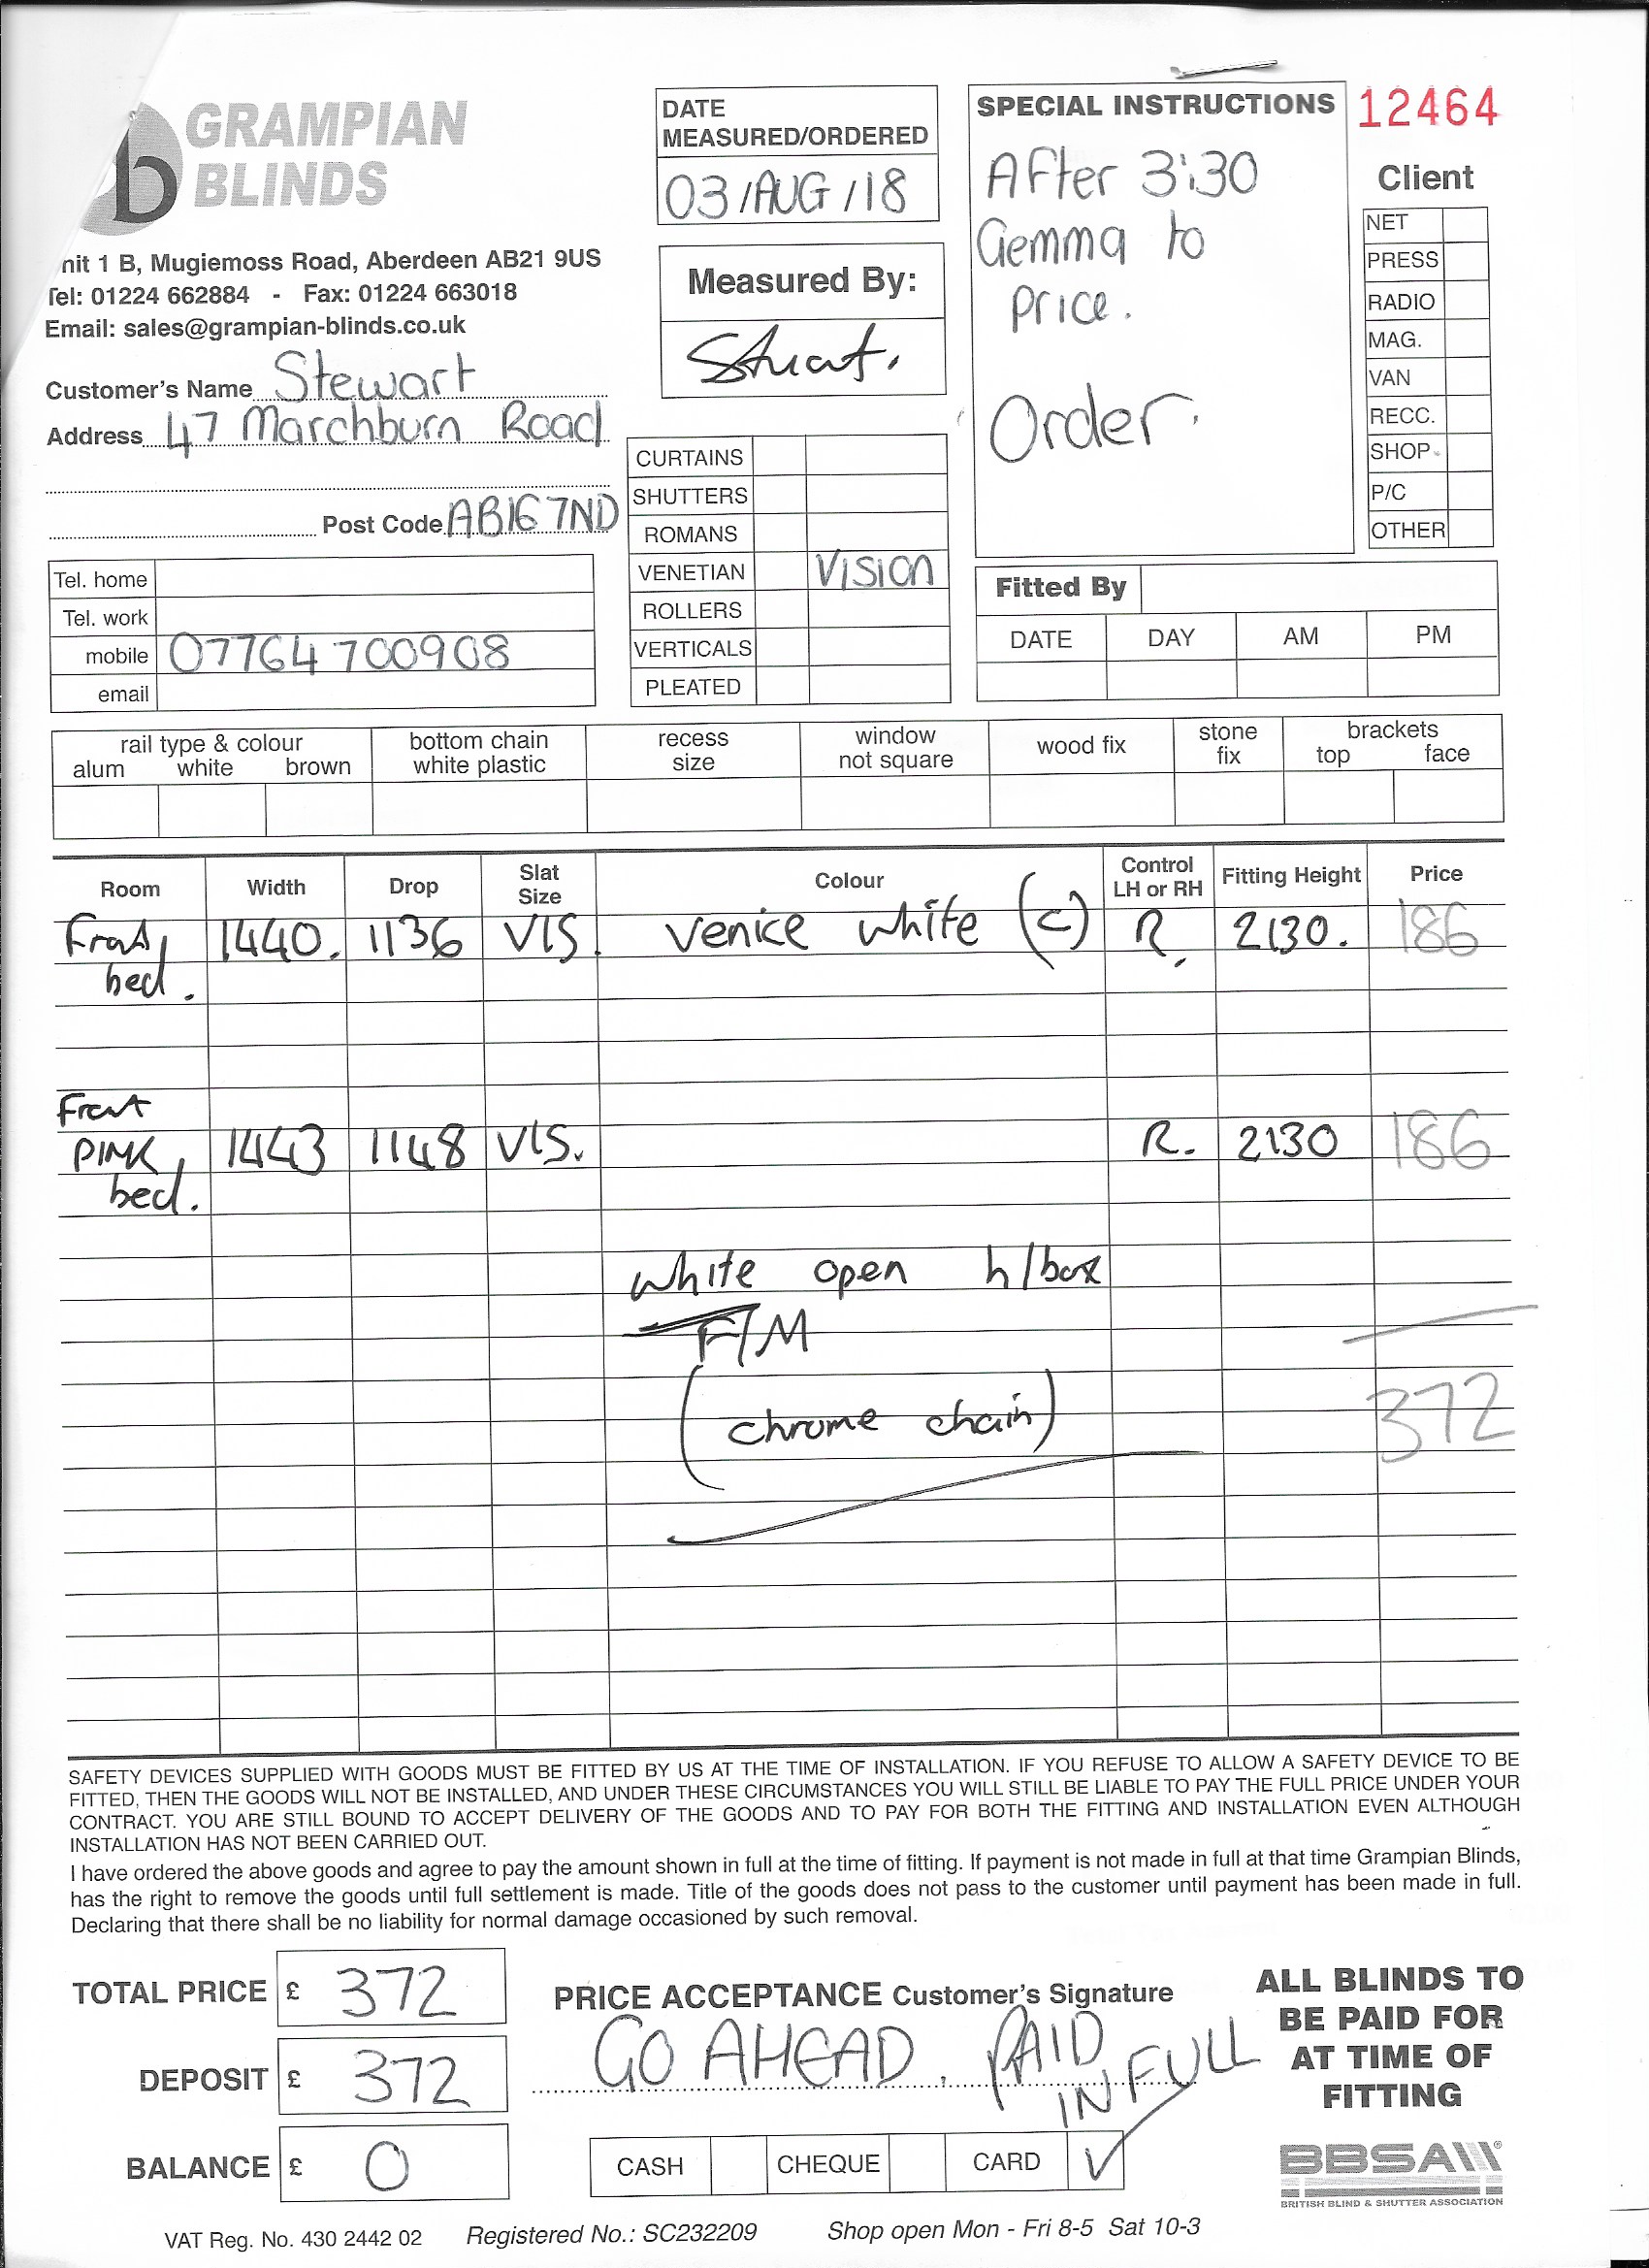 GRAMPIAN
BLINDS
nit 1 B, Mugiemoss Road, Aberdeen AB21 9US
Tel: 01224 662884 - Fax: 01224 663018
Email: sales@grampian-blinds.co.uk
Customer's Name Stewart
Address 47 Marchburn Road
Post Code AB16 7ND
Tel. home
Tel. work
mobile 07764 700908
email
DATE
MEASURED/ORDERED
03/AUG/18
Measured By:
Stuart.
CURTAINS
SHUTTERS
ROMANS
VENETIAN Vision
ROLLERS
VERTICALS
PLEATED
SPECIAL INSTRUCTIONS
After 3:30
Gemma to
price.
Order.
12464
Client
NET
PRESS
RADIO
MAG.
VAN
RECC.
SHOP
P/C
OTHER
Fitted By
DATE DAY AM PM
rail type & colour
alum white brown
bottom chain
white plastic
recess
size
window
not square
wood fix
stone
fix
brackets
top face
Room Width Drop Slat Size Colour Control LH or RH Fitting Height Price
Front 1440. 1136 VIS. Venice white (c) R. 2130. 186
bed.
Front
PINK 1443 1148 VIS. R. 2130 186
bed.
white open h/box
F/M
(chrome chain)
372
SAFETY DEVICES SUPPLIED WITH GOODS MUST BE FITTED BY US AT THE TIME OF INSTALLATION. IF YOU REFUSE TO ALLOW A SAFETY DEVICE TO BE
FITTED, THEN THE GOODS WILL NOT BE INSTALLED, AND UNDER THESE CIRCUMSTANCES YOU WILL STILL BE LIABLE TO PAY THE FULL PRICE UNDER YOUR
CONTRACT. YOU ARE STILL BOUND TO ACCEPT DELIVERY OF THE GOODS AND TO PAY FOR BOTH THE FITTING AND INSTALLATION EVEN ALTHOUGH
INSTALLATION HAS NOT BEEN CARRIED OUT.
I have ordered the above goods and agree to pay the amount shown in full at the time of fitting. If payment is not made in full at that time Grampian Blinds,
has the right to remove the goods until full settlement is made. Title of the goods does not pass to the customer until payment has been made in full.
Declaring that there shall be no liability for normal damage occasioned by such removal.
TOTAL PRICE £ 372
DEPOSIT £ 372
BALANCE £ 0
PRICE ACCEPTANCE Customer's Signature
GO AHEAD. PAID
IN FULL
CASH CHEQUE CARD ✓
ALL BLINDS TO
BE PAID FOR
AT TIME OF
FITTING
BBSA
BRITISH BLIND & SHUTTER ASSOCIATION
VAT Reg. No. 430 2442 02 Registered No.: SC232209 Shop open Mon - Fri 8-5 Sat 10-3